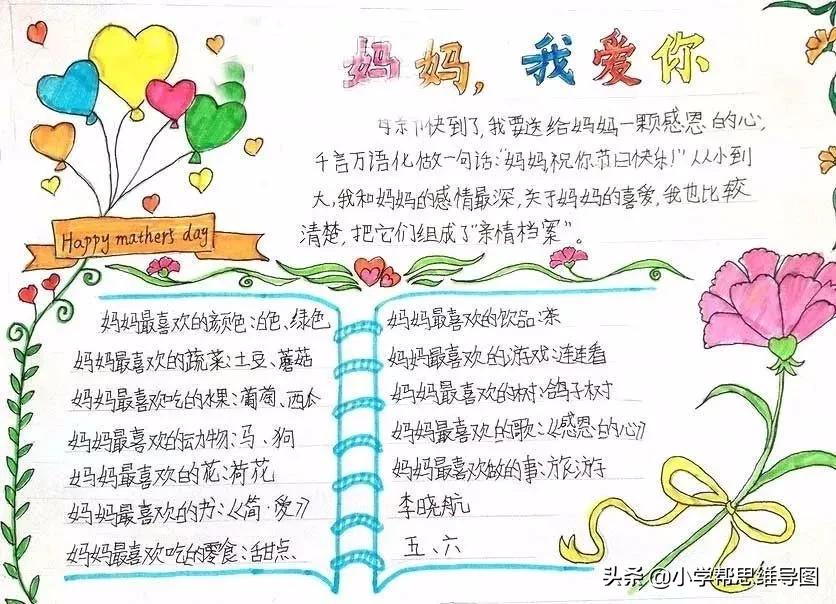 妈妈，我爱你
母亲节快到了，我要送给妈妈一颗感恩的心，
千言万语化做一句话：“妈妈，祝你节日快乐！”从小到
大，我和妈妈的感情最深，关于妈妈的喜爱，我也比较
清楚，把它们组成了“亲情档案”。
Happy mathers day
妈妈最喜欢的颜色：白色、绿色
妈妈最喜欢的蔬菜：土豆、蘑菇
妈妈最喜欢吃的水果：葡萄、西瓜
妈妈最喜欢的动物：马、狗
妈妈最喜欢的花：荷花
妈妈最喜欢的书：《简·爱》
妈妈最喜欢吃的零食：甜点
妈妈最喜欢的饮品：茶
妈妈最喜欢的游戏：连连看
妈妈最喜欢的树：鸽子树
妈妈最喜欢的歌：《感恩的心》
妈妈最喜欢做的事：旅游
李晓航
五、六
头条 @小学帮思维导图